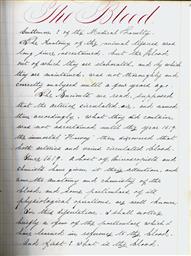 The Blood
of the Medical Faculty.
The Anatomy of the animal
long since ascertained. but the blood
out of which they are elaborated, and by which
they are maintained, was not thoroughly and
correctly analyzed until a few years ago.
The Ancients we read, supposed
that the arteries circulated air, and named
them accordingly. What they did contain,
was not ascertained until the year 1619
the immortal Harvey then discovered that
both arteries and veins circulated blood.
Since 1619. a host of
chemists have given it their attention, and
now the anatomy and chemistry of the
blood, and some particulars of its
physiological operations are well known.
In this dissertation, I shall notice
briefly a few of the particulars which I
have learned in reference to the blood.
And first: what is the blood.